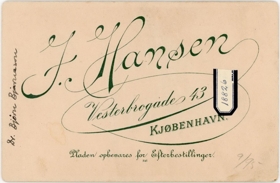 J. Hansen
Vesterbrogade 43
KJØBENHAVN.
Pladen opbevares for Efterbestillinger.
Dr. Bjørn
18826